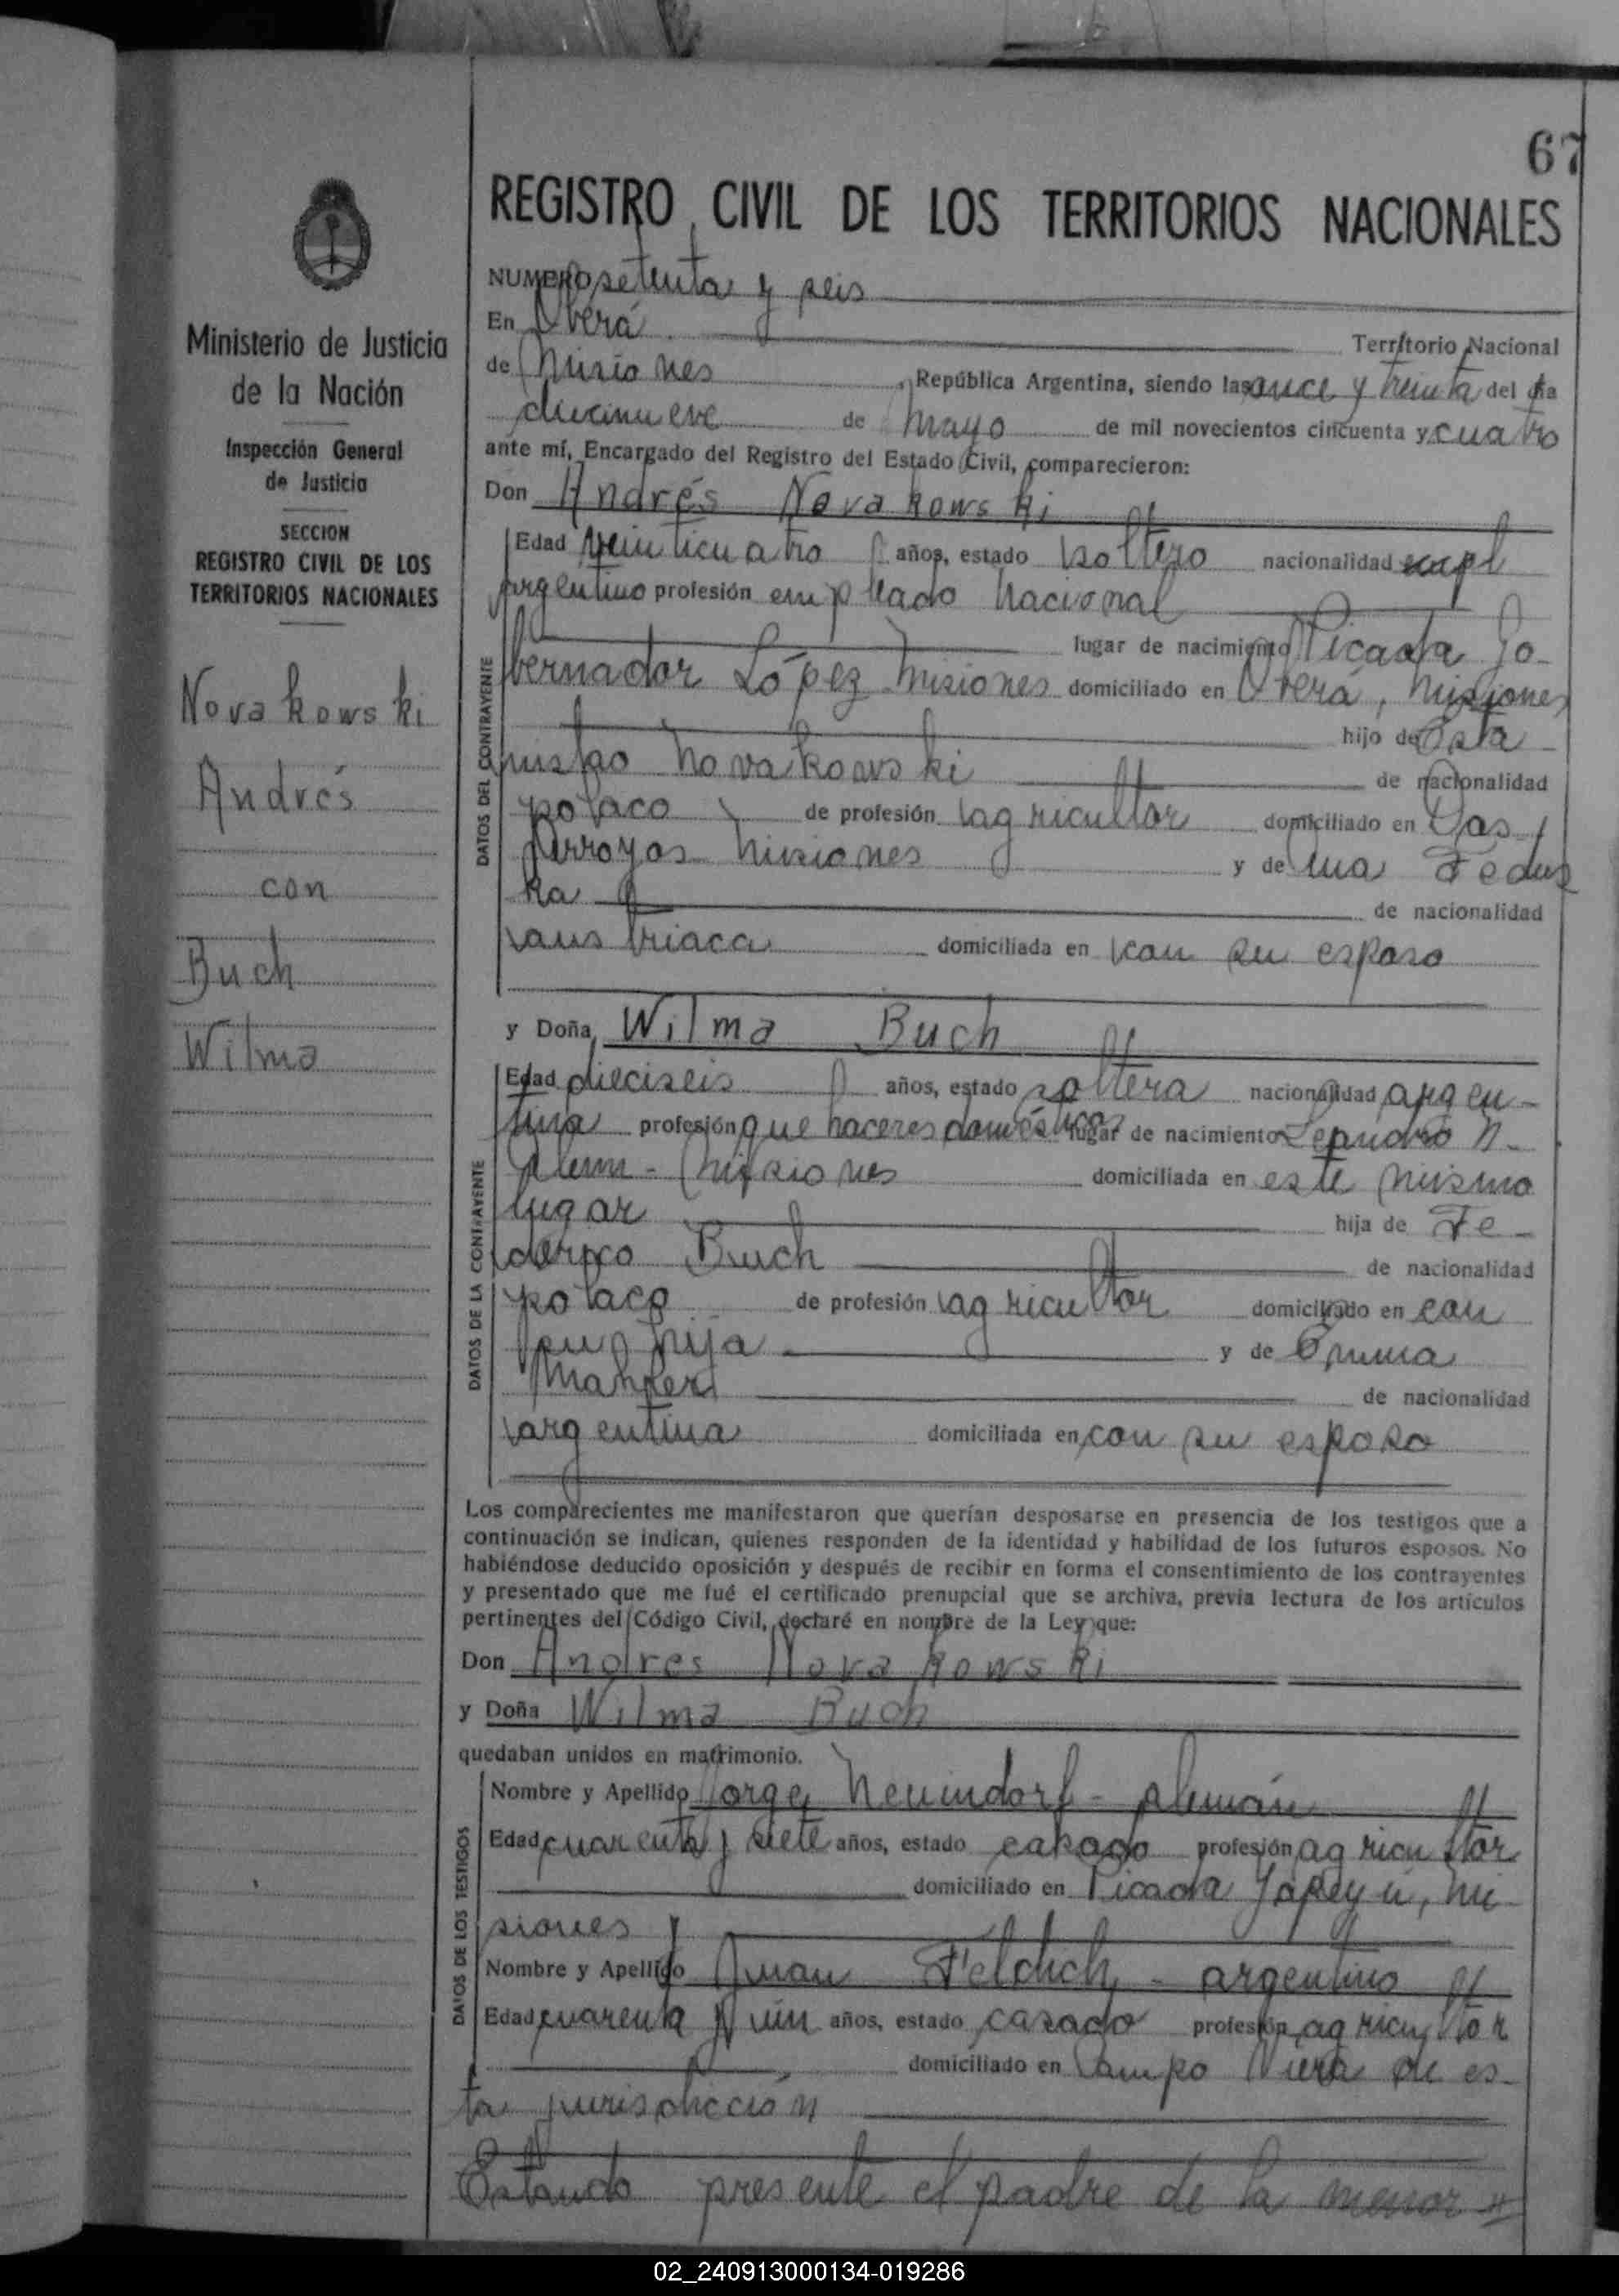 67
REGISTRO CIVIL DE LOS TERRITORIOS NACIONALES
Ministerio de Justicia
de la Nación
Inspección General
de Justicia
SECCION
REGISTRO CIVIL DE LOS
TERRITORIOS NACIONALES
Novakowski
Andrés
con
Buch
Wilma
NUMERO setenta y seis
En Oberá Territorio Nacional
de Misiones, República Argentina, siendo las once y treinta del día
diecinueve de mayo de mil novecientos cincuenta y cuatro
ante mí, Encargado del Registro del Estado Civil, comparecieron:
Don Andrés Novakowski
DATOS DEL CONTRAYENTE
Edad veinticuatro años, estado soltero nacionalidad
argentino profesión empleado nacional
lugar de nacimiento Picada Go-
bernador López Misiones domiciliado en Oberá, Misiones
hijo de Osta
Novakowski de nacionalidad
polaco de profesión agricultor domiciliado en Dos
Arroyos Misiones y de Ana
ka de nacionalidad
austriaca domiciliada en con su esposo
y Doña Wilma Buch
DATOS DE LA CONTRAYENTE
Edad dieciseis años, estado soltera nacionalidad argen-
tina profesión quehaceres domésticos lugar de nacimiento Leandro N.
Alem - Misiones domiciliada en este mismo
lugar hija de Fe-
derico Buch de nacionalidad
polaco de profesión agricultor domiciliado en con
su hija y de Emma
de nacionalidad
argentina domiciliada en con su esposo
Los comparecientes me manifestaron que querían desposarse en presencia de los testigos que a
continuación se indican, quienes responden de la identidad y habilidad de los futuros esposos. No
habiéndose deducido oposición y después de recibir en forma el consentimiento de los contrayentes
y presentado que me fué el certificado prenupcial que se archiva, previa lectura de los artículos
pertinentes del Código Civil, declaré en nombre de la Ley que:
Don Andrés Novakowski
y Doña Wilma Buch
quedaban unidos en matrimonio.
DATOS DE LOS TESTIGOS
Nombre y Apellido Jorge Neuindorf - alemán
Edad cuarenta y siete años, estado casado profesión agricultor
domiciliado en Picada Yapeyú, Mi-
siones y
Nombre y Apellido Juan - argentino
Edad cuarenta y un años, estado casado profesión agricultor
domiciliado en Campo Viera de es-
ta jurisdicción
Estando presente el padre de la menor #
02_240913000134-019286